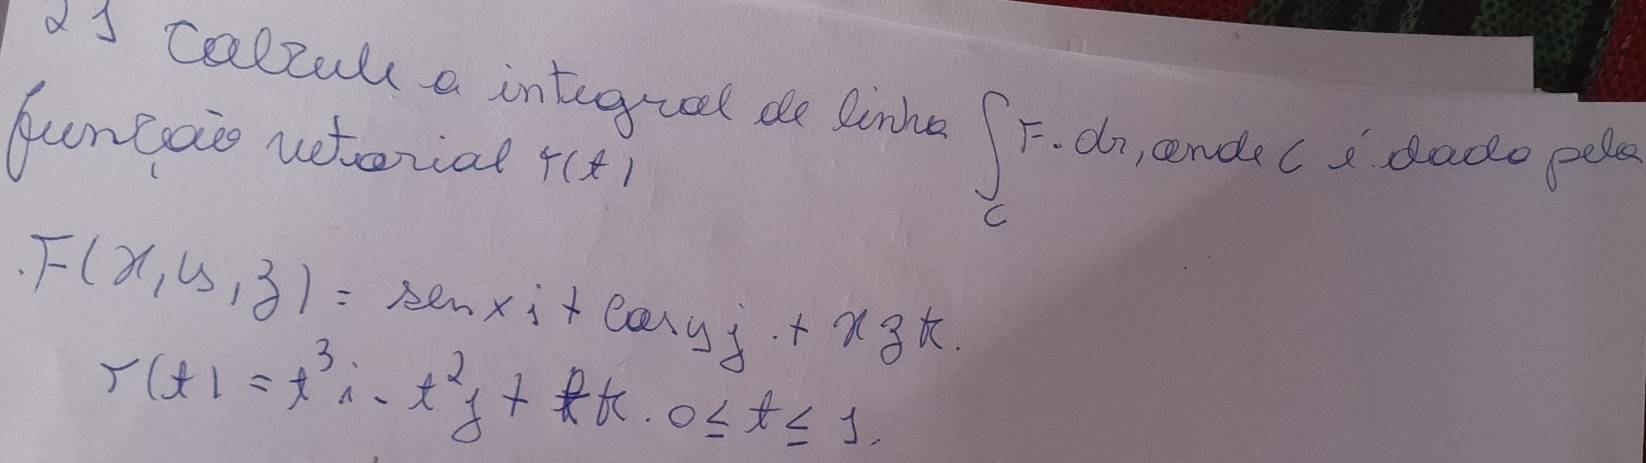 21 Calcule a integral de linha ∫ F. dr, onde C é dado pela
C
função vetorial r(t)
.F(x, y, z) = sen x i + cos y j + x z k.
r(t) = t³ i - t² j + t k. 0 ≤ t ≤ 1.